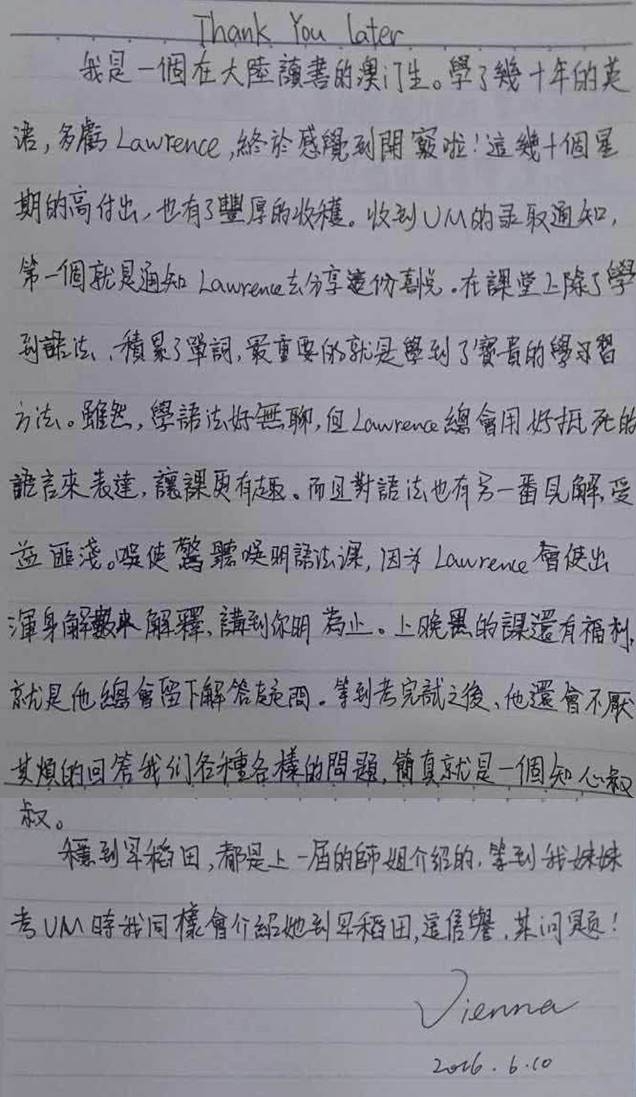 Thank You later
我是一個在大陸讀書的澳门生。學了幾十年的英
语,多虧Lawrence,終於感覺到開竅啦!這幾十個星
期的高付出,也有了豐厚的收穫。收到UM的录取通知,
第一個就是通知Lawrence去分享這份喜悦。在課堂上除了學
到語法、積累了單詞,最重要的就是學到了寶貴的學习習
方法。雖然,學語法好無聊,但Lawrence總會用好抵死的
語言來表達,讓課更有趣。而且對語法也有另一番見解,受
益匪淺。唔使驚聽唔明語法课,因为Lawrence會使出
渾身解數來解釋,講到你明為止。上晚黑的課還有福利,
就是他總會留下解答疑問。等到考完試之後、他還會不厭
其煩的回答我们各種各樣的問題,簡直就是一個知心叔
叔。
穩到早稻田,都是上一屆的師姐介紹的.等到我妹妹
考UM時我同樣會介紹她到早稻田,這信譽,某问题!
Vienna
2016.6.10